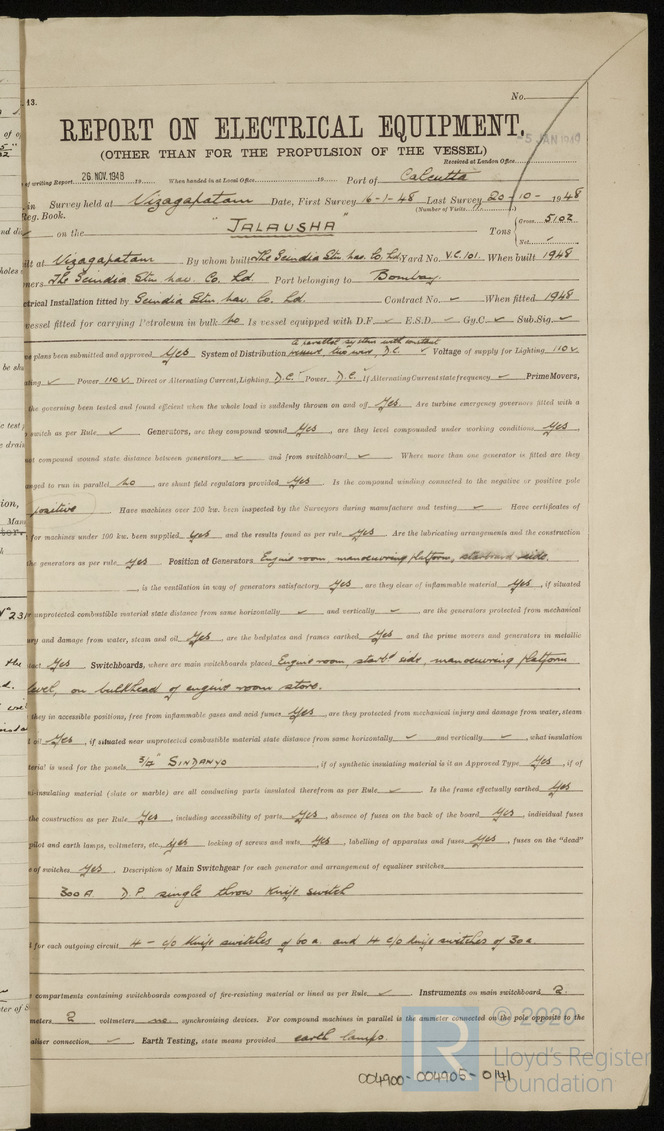 13.
No.
REPORT ON ELECTRICAL EQUIPMENT.
(OTHER THAN FOR THE PROPULSION OF THE VESSEL)
Received at London Office
5 JAN
of writing Report 26 NOV. 1948 19 When handed in at Local Office 19 Port of Calcutta
in Survey held at Vizagapatam Date, First Survey 6-1-48 Last Survey 20-10-1948
(Number of Visits
Reg. Book.
on the "JALAUSHA" Tons { Gross 5102
Net ✓
ilt at Vizagapatam By whom built The Scindia Stm. Nav. Co. Ld. Yard No. V.C. 101. When built 1948
ners The Scindia Stm. Nav. Co. Ld. Port belonging to Bombay.
ctrical Installation fitted by Scindia Stm. Nav. Co. Ld. Contract No. ✓ When fitted 1948
vessel fitted for carrying Petroleum in bulk No Is vessel equipped with D.F. ✓ E.S.D. ✓ Gy.C. ✓ Sub.Sig. ✓
A parallel system with constant
e plans been submitted and approved Yes System of Distribution two wire, D.C. ✓ Voltage of supply for Lighting 110 v.
ating ✓ Power 110 v. Direct or Alternating Current, Lighting D.C. Power D.C. If Alternating Current state frequency ✓ Prime Movers,
the governing been tested and found efficient when the whole load is suddenly thrown on and off Yes. Are turbine emergency governors fitted with a
switch as per Rule ✓ Generators, are they compound wound Yes, are they level compounded under working conditions Yes,
not compound wound state distance between generators ✓ and from switchboard ✓ Where more than one generator is fitted are they
nged to run in parallel No, are shunt field regulators provided Yes Is the compound winding connected to the negative or positive pole
positive Have machines over 100 kw. been inspected by the Surveyors during manufacture and testing ✓ Have certificates of
for machines under 100 kw. been supplied yes and the results found as per rule Yes Are the lubricating arrangements and the construction
the generators as per rule Yes Position of Generators Engine room, manoeuvring platform, starboard side.
is the ventilation in way of generators satisfactory Yes are they clear of inflammable material Yes, if situated
unprotected combustible material state distance from same horizontally ✓ and vertically ✓, are the generators protected from mechanical
ury and damage from water, steam and oil Yes, are the bedplates and frames earthed Yes and the prime movers and generators in metallic
act Yes Switchboards, where are main switchboards placed Engine room, starbd side, manoeuvring platform
level, on bulkhead of engine room store.
they in accessible positions, free from inflammable gases and acid fumes Yes, are they protected from mechanical injury and damage from water, steam
oil Yes, if situated near unprotected combustible material state distance from same horizontally ✓ and vertically ✓, what insulation
terial is used for the panels SINDANYO, if of synthetic insulating material is it an Approved Type Yes, if of
i-insulating material (slate or marble) are all conducting parts insulated therefrom as per Rule ✓ Is the frame effectually earthed Yes
the construction as per Rule Yes, including accessibility of parts Yes, absence of fuses on the back of the board Yes, individual fuses
pilot and earth lamps, voltmeters, etc. yes locking of screws and nuts Yes, labelling of apparatus and fuses Yes, fuses on the "dead"
e of switches Yes. Description of Main Switchgear for each generator and arrangement of equaliser switches
300 A. D.P. single throw knife switch
for each outgoing circuit 4 - c/o knife switches of 60 a. and 4 c/o knife switches of 30 a.
e compartments containing switchboards composed of fire-resisting material or lined as per Rule ✓ Instruments on main switchboard 2
meters 2 voltmeters no synchronising devices. For compound machines in parallel is the ammeter connected on the pole opposite to the
aliser connection ✓ Earth Testing, state means provided earth lamps.
© 2020
Lloyd's Register
Foundation
004900-004905-0141